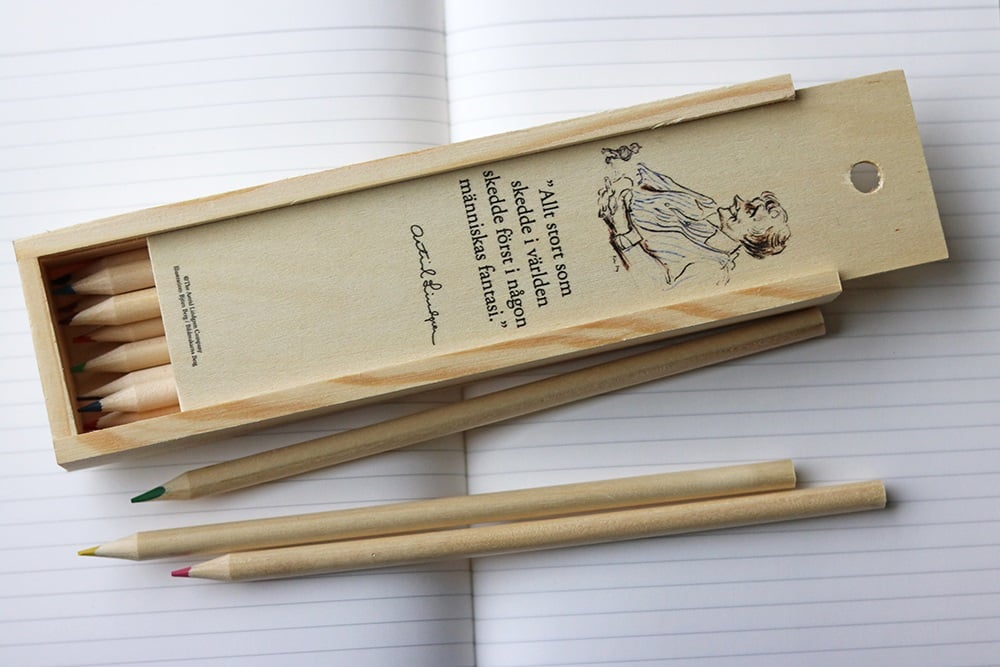 ”Allt stort som
skedde i världen
skedde först i någon
människas fantasi.”
Astrid Lindgren
©The Astrid Lindgren Company
Illustration: Björn Berg / Bildmakarna Berg